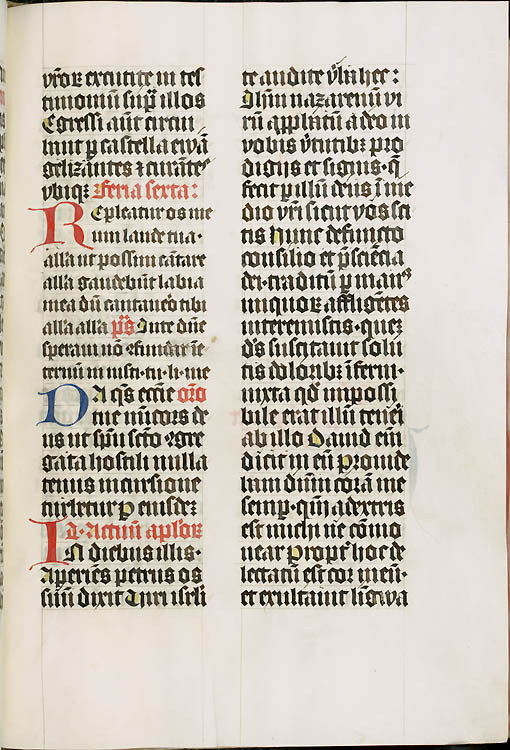 vr̄oꝝ excutite in tes
timoniū suꝑ illos
Egressi aūt circui
bant ꝑ castella ewā
gelizantes ⁊ curātes
vbiqꝫ Feria sexta:
Repleatur os me
um laude tua·
alla ut possim cātare
alla gaudebūt labia
mea dū cantauero tibi
alla alla p̄s Inte dn̄e
speraui nō ↄfundar ī e
ternum in iusti·tu·li·me
Da q̄s eccīe oro
tue mīcors de
us ut spū scto ↄgre
gata hostili nulla
tenus incursione
turbetur P eiusdeꝫ
Id· Actuū aplōꝝ
In diebus illis·
Aperiēs petrus os
suū dixit Viri isrl̄i
te audite v̄ba hec:
Ihm nazarenū vi
rū approbatū a deo in
vobis v̄tutibꝫ pro
digijs et signis· q̄
fecit ꝑ illū deus ī me
dio vr̄i sicut vos sci
tis Hunc defincto
consilio et p̄sciēcia
dei· traditū ꝑ man⁹
iniquoꝝ affligētes
interemistis· queꝫ
ds̄ suscitauit solu
tis doloribꝫ īferni·
iuxta qd̄ impossi
bile erat illū teneri
ab illo Dauid eni
dicit in eū Prouide
bam dnūm corā me
semp̄· qm̄ a dextris
est michi ne cōmo
uear Propt̄ hoc de
lectatū est cor meū·
et exultauit lingwa